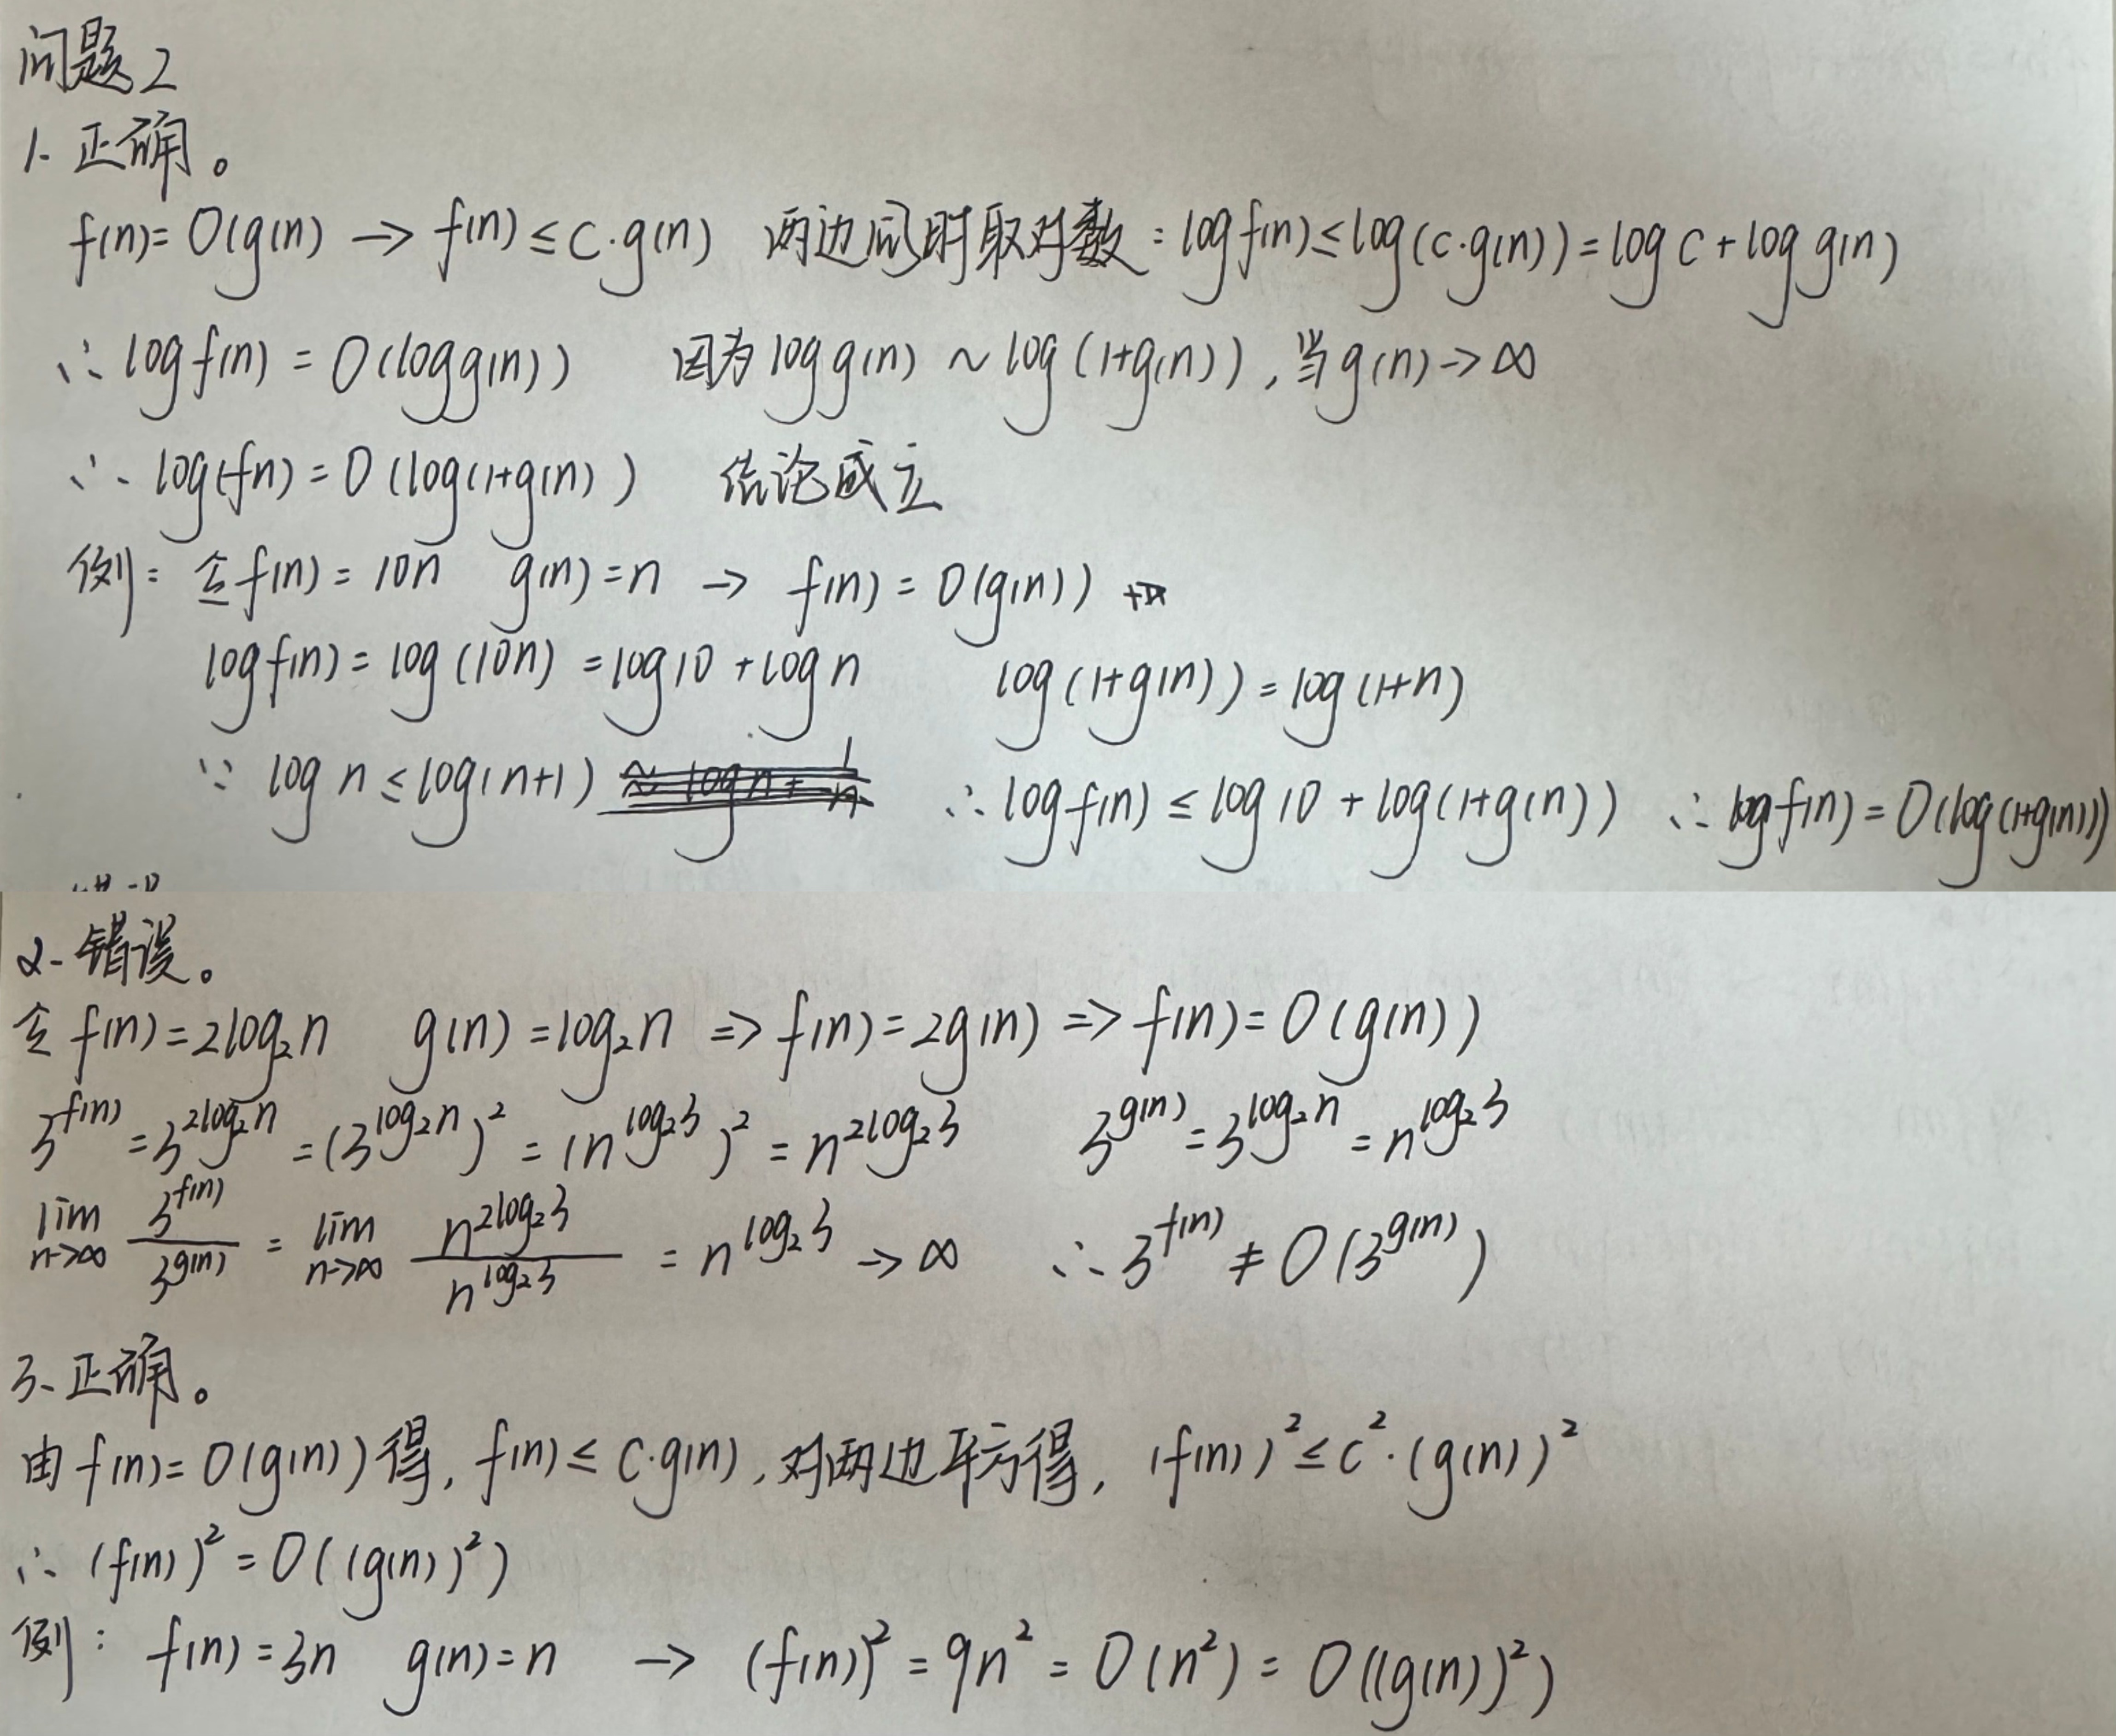 问题2
1. 正确。
f(n)=O(g(n) → f(n)≤C·g(n) 两边同时取对数：log f(n)≤log(c·g(n))=log c+log g(n)
∴ log f(n) = O(log g(n)) 因为 log g(n) ~ log(1+g(n)), 当 g(n)→∞
∴ log(fn) = O(log(1+g(n)) 结论成立
例：令 f(n)=10n g(n)=n → f(n)=O(g(n))
log f(n)=log(10n)=log10+log n log(1+g(n))=log(1+n)
∵ log n≤log(n+1) ∴ log f(n)≤log10+log(1+g(n)) ∴ log f(n)=O(log(1+g(n)))
2. 错误。
令 f(n)=2log₂n g(n)=log₂n => f(n)=2g(n) => f(n)=O(g(n))
3^f(n) = 3^(2log₂n) = (3^(log₂n))² = (n^(log₂3))² = n^(2log₂3) 3^g(n) = 3^(log₂n) = n^(log₂3)
lim n→∞ 3^f(n)/3^g(n) = lim n→∞ n^(2log₂3)/n^(log₂3) = n^(log₂3) → ∞ ∴ 3^f(n) ≠ O(3^g(n))
3、正确。
由 f(n)=O(g(n))得, f(n)≤C·g(n), 对两边平方得, (f(n))²≤c²·(g(n))²
∴ (f(n))²=O((g(n))²)
例: f(n)=3n g(n)=n → (f(n))²=9n²=O(n²)=O((g(n))²)